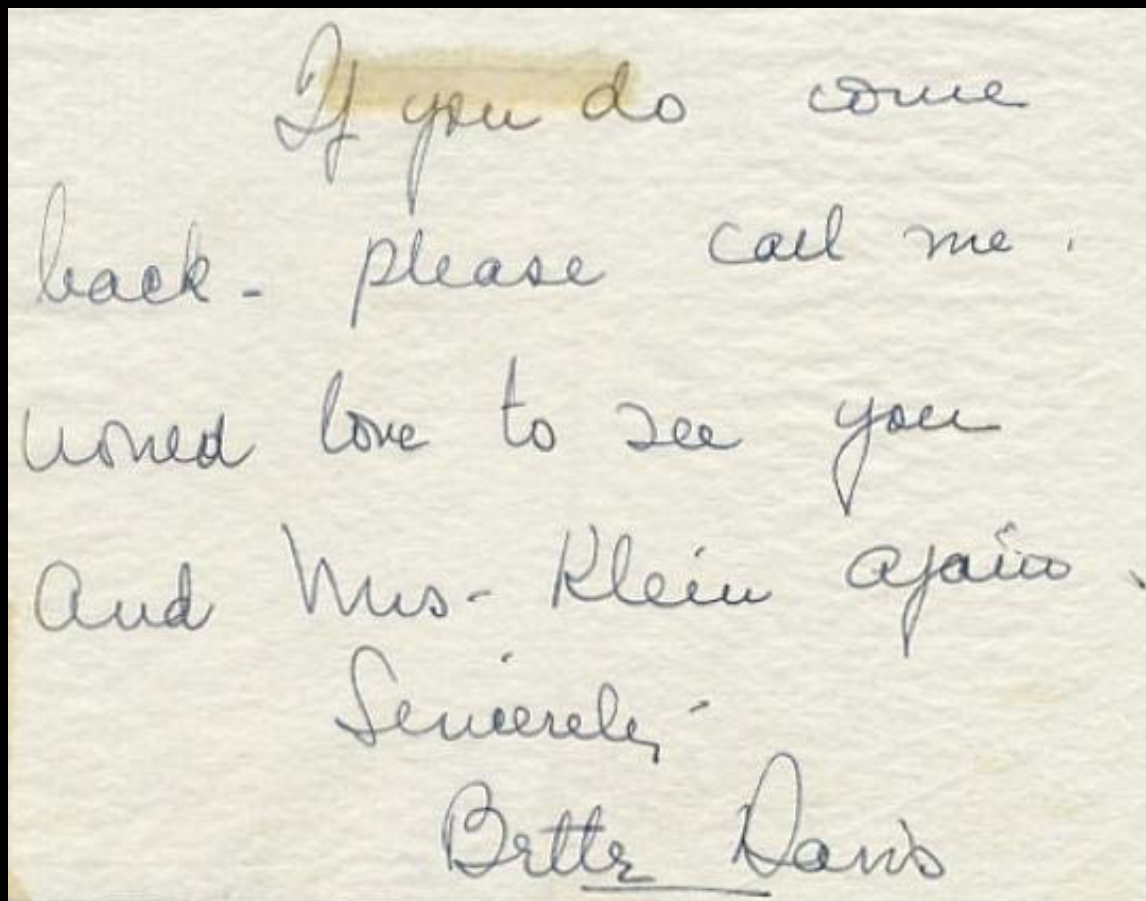 If you do come
back - please call me.
would love to see you
and Mrs - Klein again.
Sincerely -
Bette Davis